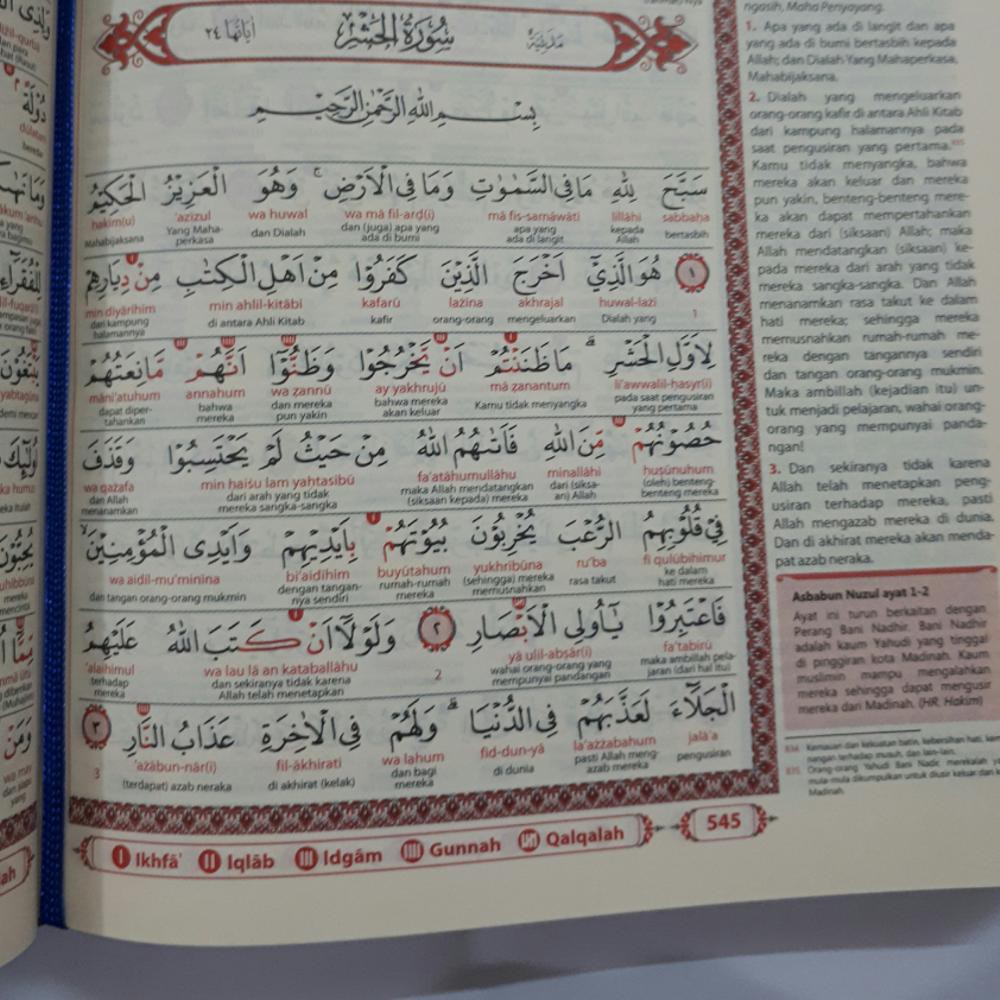 سُوْرَةُ الْحَشْرِ
مَدَنِيَّة
اٰيَاتُهَا ٢٤
بِسْمِ اللّٰهِ الرَّحْمٰنِ الرَّحِيْمِ
سَبَّحَ لِلّٰهِ مَا فِى السَّمٰوٰتِ وَمَا فِى الْاَرْضِۚ وَهُوَ الْعَزِيْزُ الْحَكِيْمُ
sabbaḥa lillāhi mā fis-samāwāti wa mā fil-arḍ(i) wa huwal 'azizul ḥakīm(u)
bertasbih kepada Allah apa yang ada di langit dan (juga) apa yang ada di bumi dan Dialah Yang Maha-perkasa Mahabijaksana
١ هُوَ الَّذِيْٓ اَخْرَجَ الَّذِيْنَ كَفَرُوْا مِنْ اَهْلِ الْكِتٰبِ مِنْ دِيَارِهِمْ
1 huwal-lażī akhrajal lażīna kafarū min ahlil-kitābi min diyārihim
Dialah yang mengeluarkan orang-orang kafir di antara Ahli Kitab dari kampung halamannya
لِاَوَّلِ الْحَشْرِۗ مَا ظَنَنْتُمْ اَنْ يَّخْرُجُوْا وَظَنُّوْٓا اَنَّهُمْ مَّانِعَتُهُمْ
li'awwalil-ḥasyr(i) mā ẓanantum ay yakhrujū wa ẓannū annahum māni'atuhum
pada saat pengusiran yang pertama Kamu tidak menyangka bahwa mereka akan keluar dan mereka pun yakin bahwa mereka dapat diper-tahankan
حُصُوْنُهُمْ مِّنَ اللّٰهِ فَاَتٰىهُمُ اللّٰهُ مِنْ حَيْثُ لَمْ يَحْتَسِبُوْا وَقَذَفَ
ḥuṣūnuhum minallāhi fa'atāhumullāhu min ḥaiṡu lam yaḥtasibū wa qażafa
(oleh) benteng-benteng mereka dari (siksa-an) Allah maka Allah mendatangkan (siksaan kepada) mereka dari arah yang tidak mereka sangka-sangka dan Allah menanamkan
فِيْ قُلُوْبِهِمُ الرُّعْبَ يُخْرِبُوْنَ بُيُوْتَهُمْ بِاَيْدِيْهِمْ وَاَيْدِى الْمُؤْمِنِيْنَۙ
fī qulūbihimur ru'ba yukhribūna buyūtahum bi'aidīhim wa aidil-mu'minīna
ke dalam hati mereka rasa takut (sehingga) mereka memusnahkan rumah-rumah mereka dengan tangan-nya sendiri dan tangan orang-orang mukmin
فَاعْتَبِرُوْا يٰٓاُولِى الْاَبْصَارِ ٢ وَلَوْلَآ اَنْ كَتَبَ اللّٰهُ عَلَيْهِمُ
fa'tabirū yā ulil-abṣār(i) 2 wa lau lā an kataballāhu 'alaihimul
maka ambillah pela-jaran (dari hal itu) wahai orang-orang yang mempunyai pandangan dan sekiranya tidak karena Allah telah menetapkan terhadap mereka
الْجَلَاۤءَ لَعَذَّبَهُمْ فِى الدُّنْيَاۗ وَلَهُمْ فِى الْاٰخِرَةِ عَذَابُ النَّارِ ٣
jalā'a la'ażżabahum fid-dun-yā wa lahum fil-ākhirati 'ażābun-nār(i) 3
pengusiran pasti Allah meng-azab mereka di dunia dan bagi mereka di akhirat (kelak) (terdapat) azab neraka
I Ikhfā' II Iqlāb III Idgām IIII Gunnah Qalqalah
545
ngasih, Maha Penyayang.
1. Apa yang ada di langit dan apa
yang ada di bumi bertasbih kepada
Allah; dan Dialah Yang Mahaperkasa,
Mahabijaksana.
2. Dialah yang mengeluarkan
orang-orang kafir di antara Ahli Kitab
dari kampung halamannya pada
saat pengusiran yang pertama.⁸³⁵
Kamu tidak menyangka, bahwa
mereka akan keluar dan mereka
pun yakin, benteng-benteng mere-
ka akan dapat mempertahankan
mereka dari (siksaan) Allah; maka
Allah mendatangkan (siksaan) ke-
pada mereka dari arah yang tidak
mereka sangka-sangka. Dan Allah
menanamkan rasa takut ke dalam
hati mereka; sehingga mereka
memusnahkan rumah-rumah me-
reka dengan tangannya sendiri
dan tangan orang-orang mukmin.
Maka ambillah (kejadian itu) un-
tuk menjadi pelajaran, wahai orang-
orang yang mempunyai panda-
ngan!
3. Dan sekiranya tidak karena
Allah telah menetapkan peng-
usiran terhadap mereka, pasti
Allah mengazab mereka di dunia.
Dan di akhirat mereka akan menda-
pat azab neraka.
Asbabun Nuzul ayat 1-2
Ayat ini turun berkaitan dengan
Perang Bani Nadhir. Bani Nadhir
adalah kaum Yahudi yang tinggal
di pinggiran kota Madinah. Kaum
muslimin mampu mengalahkan
mereka sehingga dapat mengusir
mereka dari Madinah. (HR. Hakim)
834. Kemauan dan kekuatan batin, kebersihan hati,
nangan terhadap musuh, dan lain-lain.
835. Orang-orang Yahudi Bani Nadir, merekalah
mula-mula dikumpulkan untuk diusir keluar dari
Madinah.